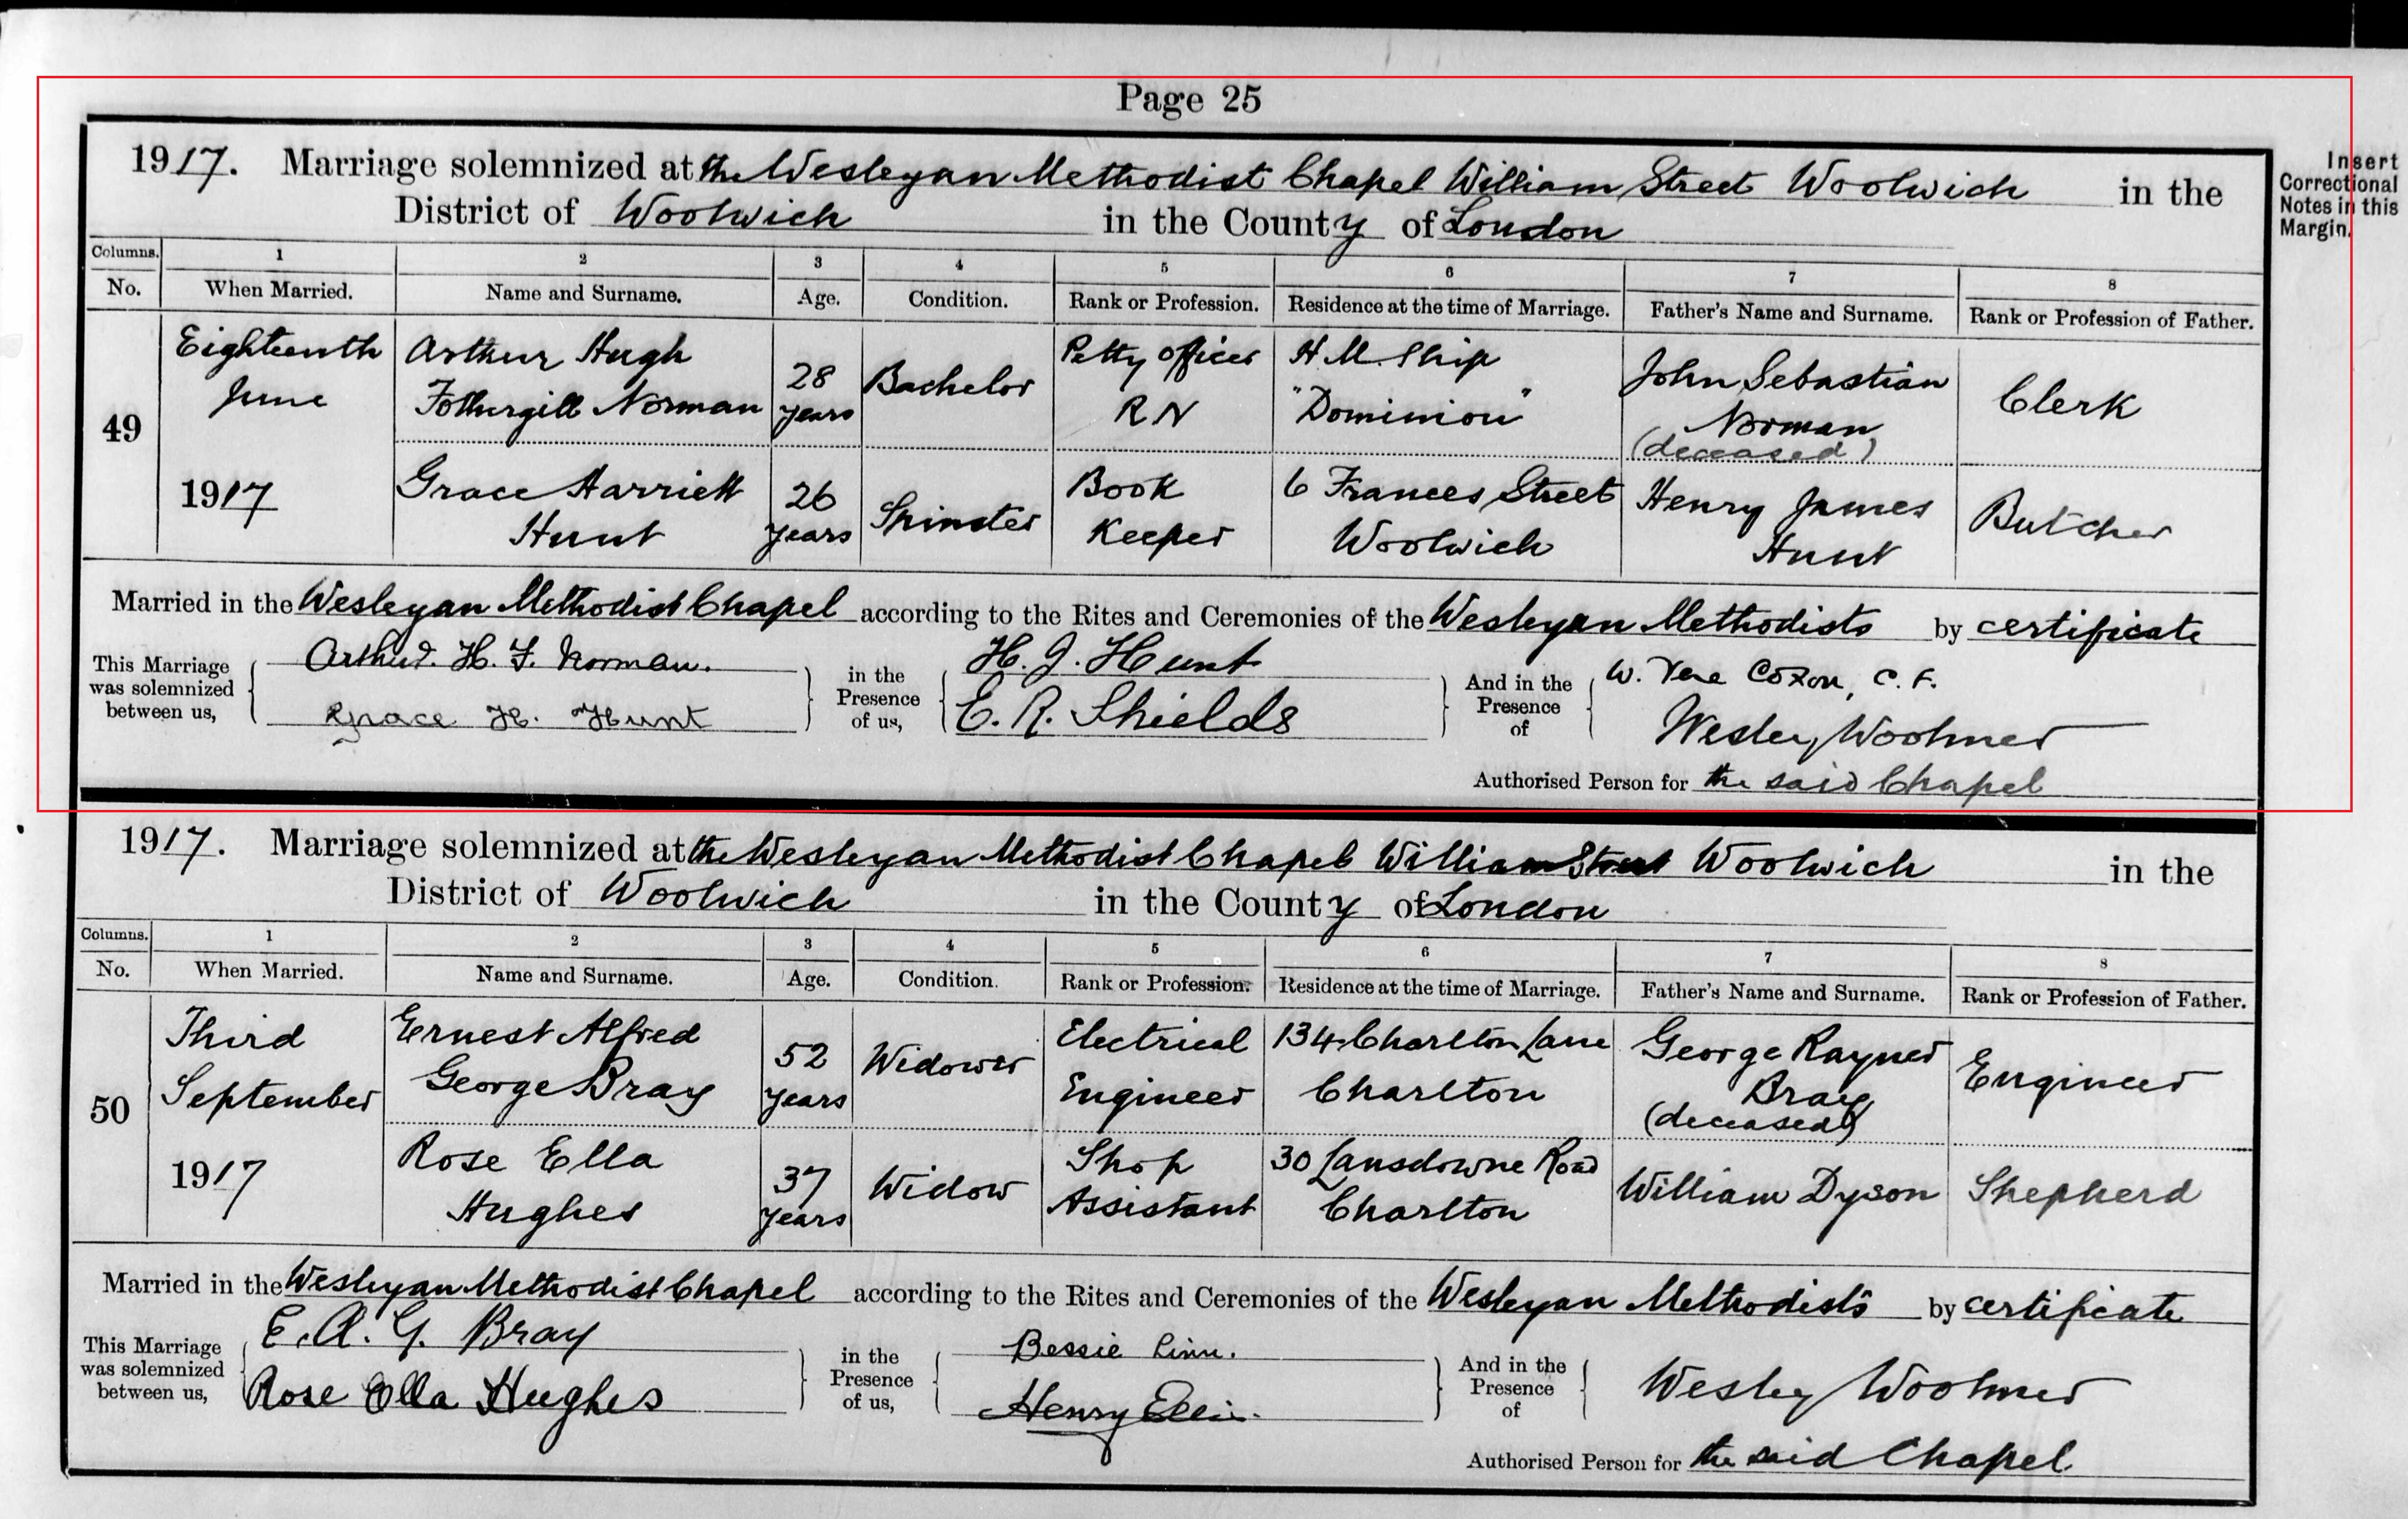 Page 25
1917. Marriage solemnized at the Wesleyan Methodist Chapel William Street Woolwich in the
District of Woolwich in the County of London
Insert
Correctional
Notes in this
Margin.
Columns. 1 2 3 4 5 6 7 8
No. When Married. Name and Surname. Age. Condition. Rank or Profession. Residence at the time of Marriage. Father's Name and Surname. Rank or Profession of Father.
49
Eighteenth
June
1917
Arthur Hugh
Fothergill Norman
28
years
Bachelor
Petty Officer
RN
H.M. Ship
"Dominion"
John Sebastian
Norman
(deceased)
Clerk
Grace Harriett
Hunt
26
years
Spinster
Book
Keeper
6 Frances Street
Woolwich
Henry James
Hunt
Butcher
Married in the Wesleyan Methodist Chapel according to the Rites and Ceremonies of the Wesleyan Methodists by certificate
This Marriage
was solemnized
between us,
Arthur. H. F. Norman.
Grace H. Hunt
in the
Presence
of us,
H. J. Hunt
E. R. Shields
And in the
Presence
of
W. Coxon, C. F.
Wesley Woolmer
Authorised Person for the said Chapel
1917. Marriage solemnized at the Wesleyan Methodist Chapel William Street Woolwich in the
District of Woolwich in the County of London
Columns. 1 2 3 4 5 6 7 8
No. When Married. Name and Surname. Age. Condition. Rank or Profession. Residence at the time of Marriage. Father's Name and Surname. Rank or Profession of Father.
50
Third
September
1917
Ernest Alfred
George Bray
52
years
Widower
Electrical
Engineer
134 Charlton Lane
Charlton
George Rayner
Bray
(deceased)
Engineer
Rose Ella
Hughes
37
years
Widow
Shop
Assistant
30 Lansdowne Road
Charlton
William Dyson
Shepherd
Married in the Wesleyan Methodist Chapel according to the Rites and Ceremonies of the Wesleyan Methodists by certificate
This Marriage
was solemnized
between us,
E. A. G. Bray
Rose Ella Hughes
in the
Presence
of us,
Bessie
Henry
And in the
Presence
of
Wesley Woolmer
Authorised Person for the said Chapel